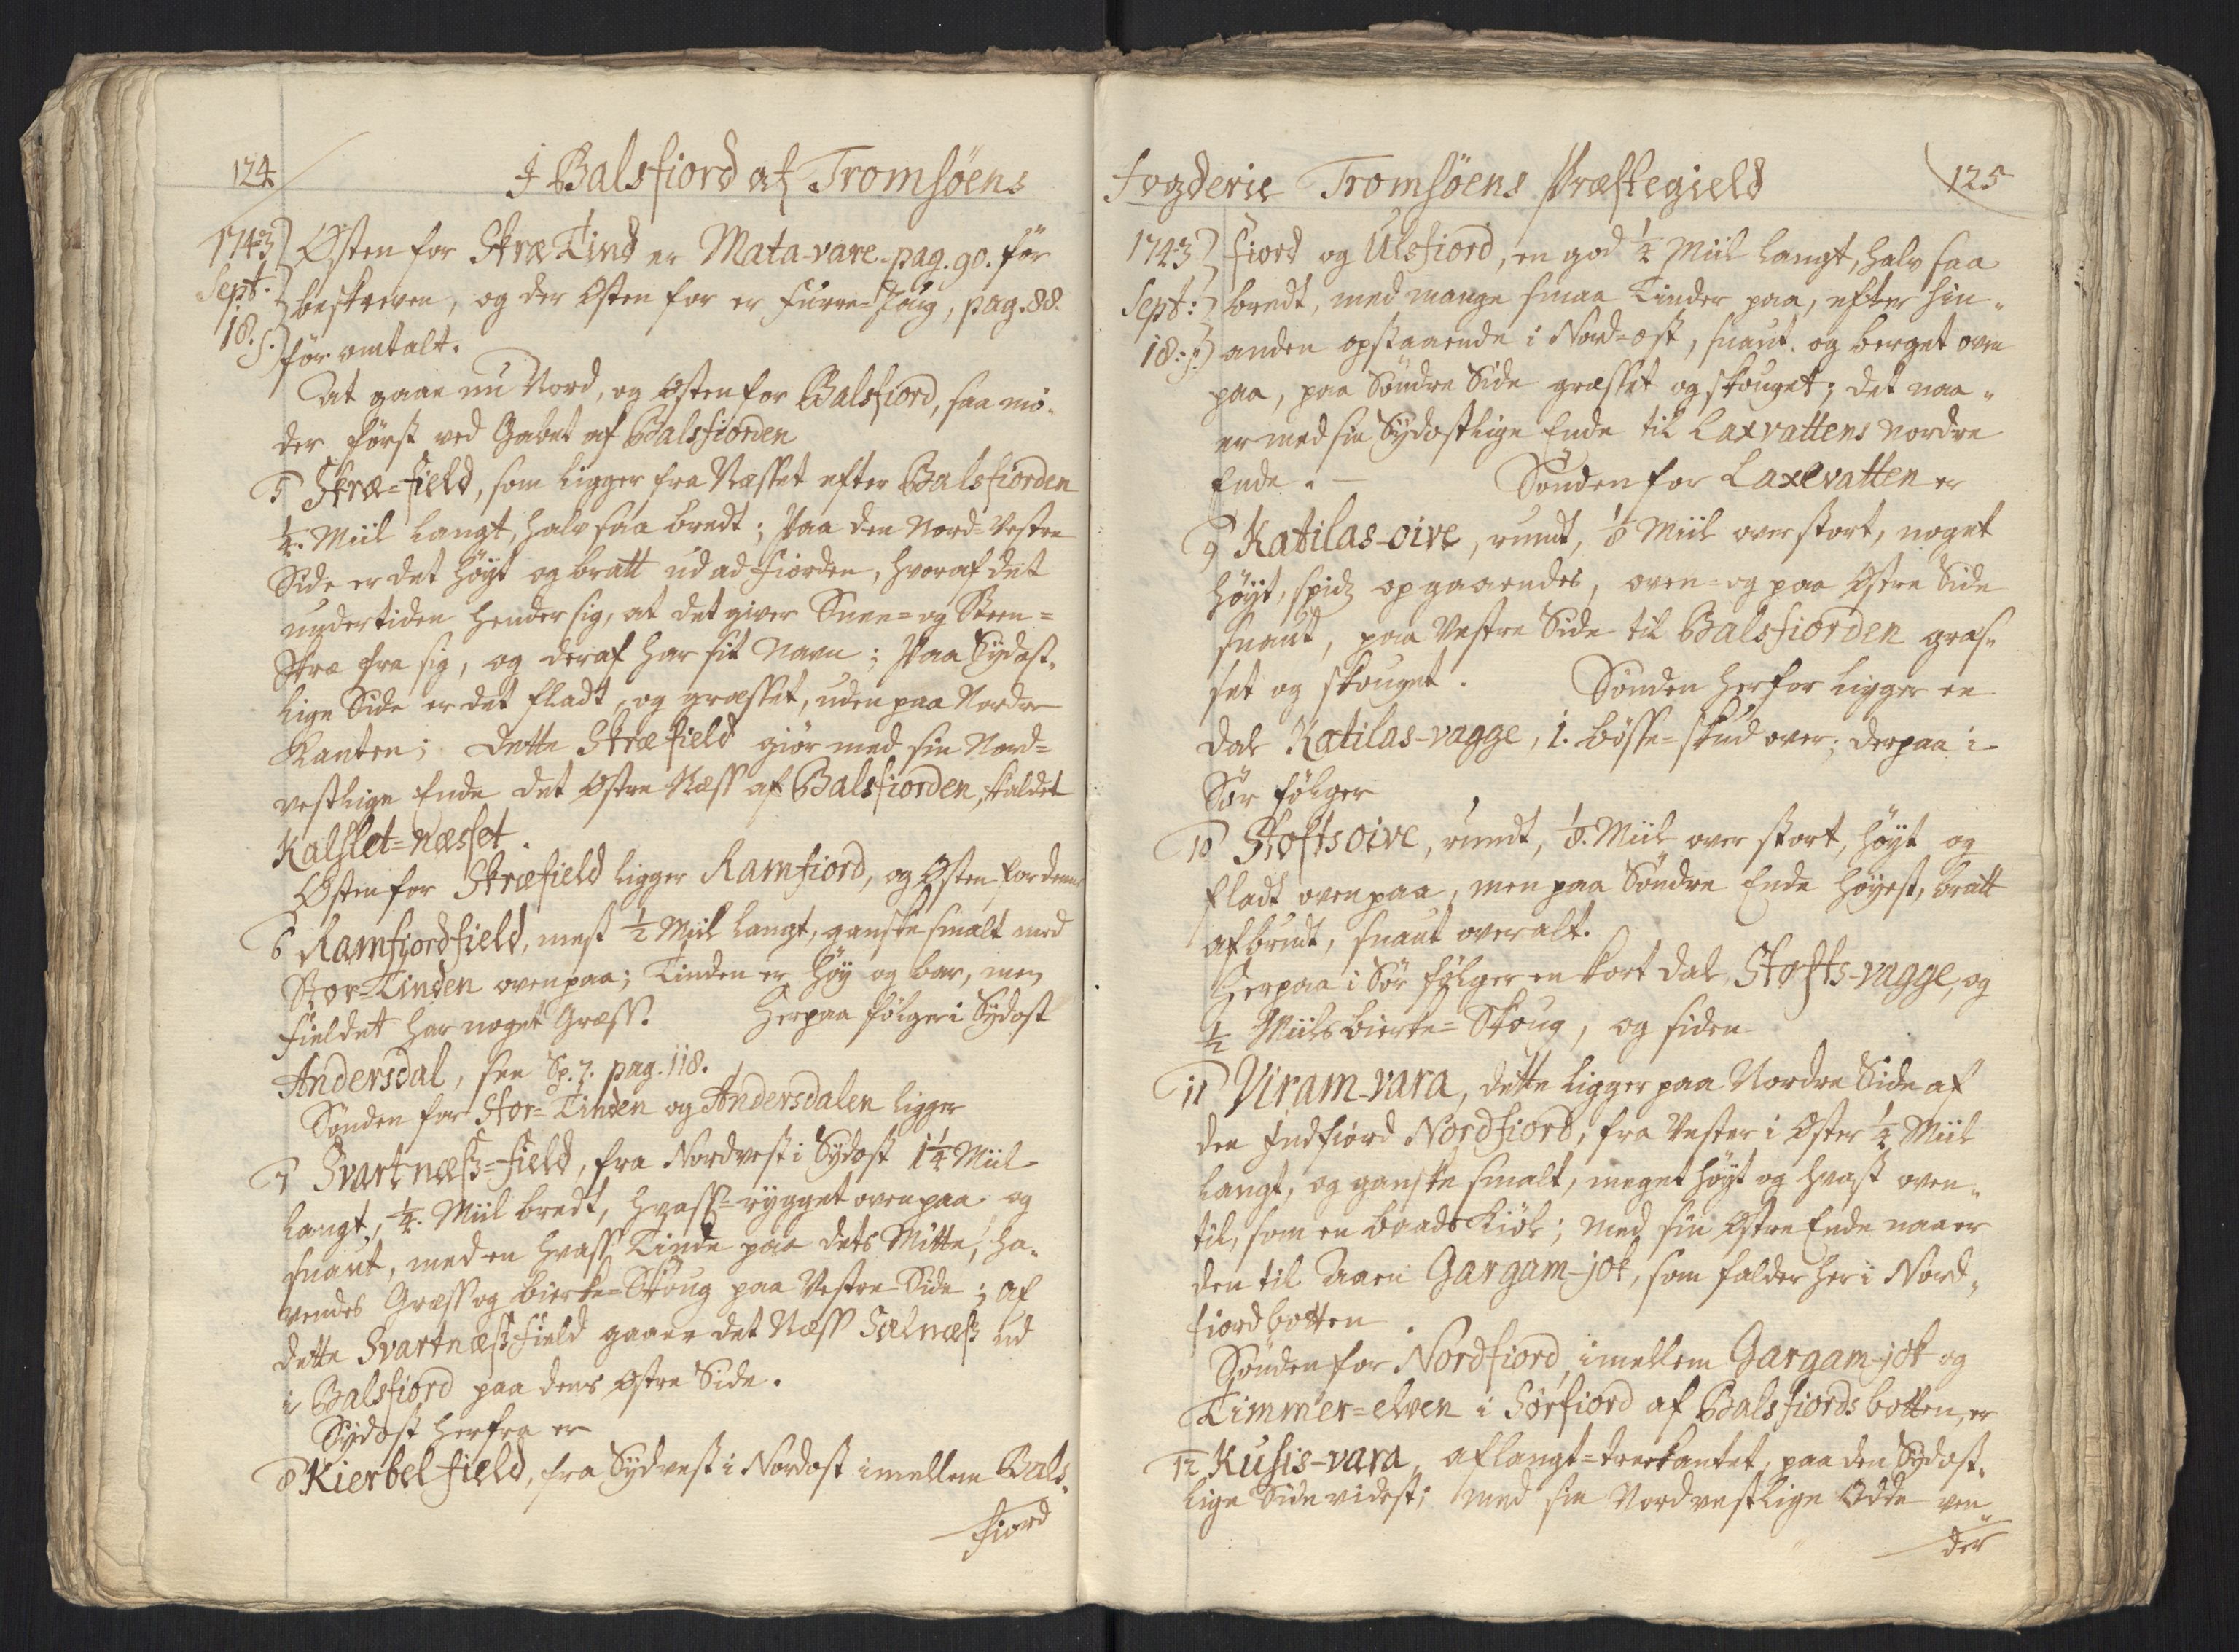 124
I Balsfiord af Tromsøens
1743
Sept:
18. s.
Østen for Skræ Tind er Mata-vare. pag. 90. før
beskreven, og der Østen for er Furre-houg, pag. 88.
før omtalt.
At gaae nu Nord, og Østen for Balsfiord, saa mö-
der först ved Gabet af Balsfiorden
5 Skræ=field, som ligger fra Næsset efter Balsfiorden
1/4. Miil langt, halv saa bredt; Paa den Nord-Vestre
Side er det höyt og bratt ud ad Fiorden, hvoraf det
undertiden hender sig, at det giver Snee= og Steen=
Skræ fra sig, og deraf har sit Navn; Paa Sydost-
lige Side er det fladt, og græsset, uden paa Nordre
Kanten; dette Skræfield giör med sin Nord=
vestlige Ende det Østre Næss af Balsfiorden, kaldet
Kalslet=næsset.
Østen for Skræfield ligger Ramfiord, og Østen for denne
6 Ramfiordfield, mest 1/2 Miil langt, ganske smalt med
Stor=Tinden oven paa; Tinden er höy og bar, men
Fieldet har noget Græss. Herpaa fölger i Sydost
Andersdal, see Sp. 7. pag. 118.
Sönden for Stor=Tinden og Andersdalen ligger
7 Svartnæss=field, fra Nordvest i Sydost 1 1/4 Miil
langt, 1/4. Miil bredt, hvass=rygget oven paa og
snaut, med en hvass Tinde paa dets Mitte, ha-
vendes Græss og bierke=Skoug paa Vestre Side; af
dette Svartnæssfield gaaer det Næss Sælnæss ud
i Balsfiord paa dens Østre Side.
Sydost herfra er
8 Kierbelfield, fra Sydvest i Nordost imellem Bals-
fiord
Fogderie Tromsöens Præstegield
125
1743
Sept:
18. s.
fiord og Ulsfiord, en god 1/4 Miil langt, halv saa
bredt, med mange smaa Tinder paa, efter hin-
anden opstaaende i Nord=ost, snaut. og berget oven
paa, paa Söndre Side græsset og skouget; det naa-
er med sin Sydostlige Ende til Laxvattens nordre
Ende. — Sönden for Laxevatten er
9 Katilas-oive, rundt, 1/8 Miil over stort, noget
höyt, spidz opgaaendes, oven= og paa Østre Side
snaut, paa Vestre Side til Balsfiorden græs-
set og skouget. Sönden herfor ligger en
Dal Katilas-vagge, 1. bösse=skud over; derpaa i
Sør fölger
10 Stoftsoive, rundt, 1/8. Miil over stort, höyt og
fladt oven paa, men paa Söndre Ende höyest, bratt
afbrudt, snaut overalt.
Herpaa i Sør fölger en kort Dal, Stofts-vagge, og
1/2 Miils bierke=Skoug, og siden
11 Viram-vara, dette ligger paa Nordre Side af
den Indfiord Nordfiord, fra Vester i Øster 1/4 Miil
langt, og ganske smalt, meget höyt og hvast oven-
til, som en baads Kiöl; med sin Østre Ende naaer
den til Aaen Gargam-jok, som falder her i Nord-
fiordbotten.
Sönden for Nordfiord, imellem Gargam-jok og
Timmer=elven i Sörfiord af Balsfiords botten, er
12 Kusis-vara, aflangt=treekantet, paa den Sydost-
lige Side videst; med sin Nordvestlige Odde ven-
der